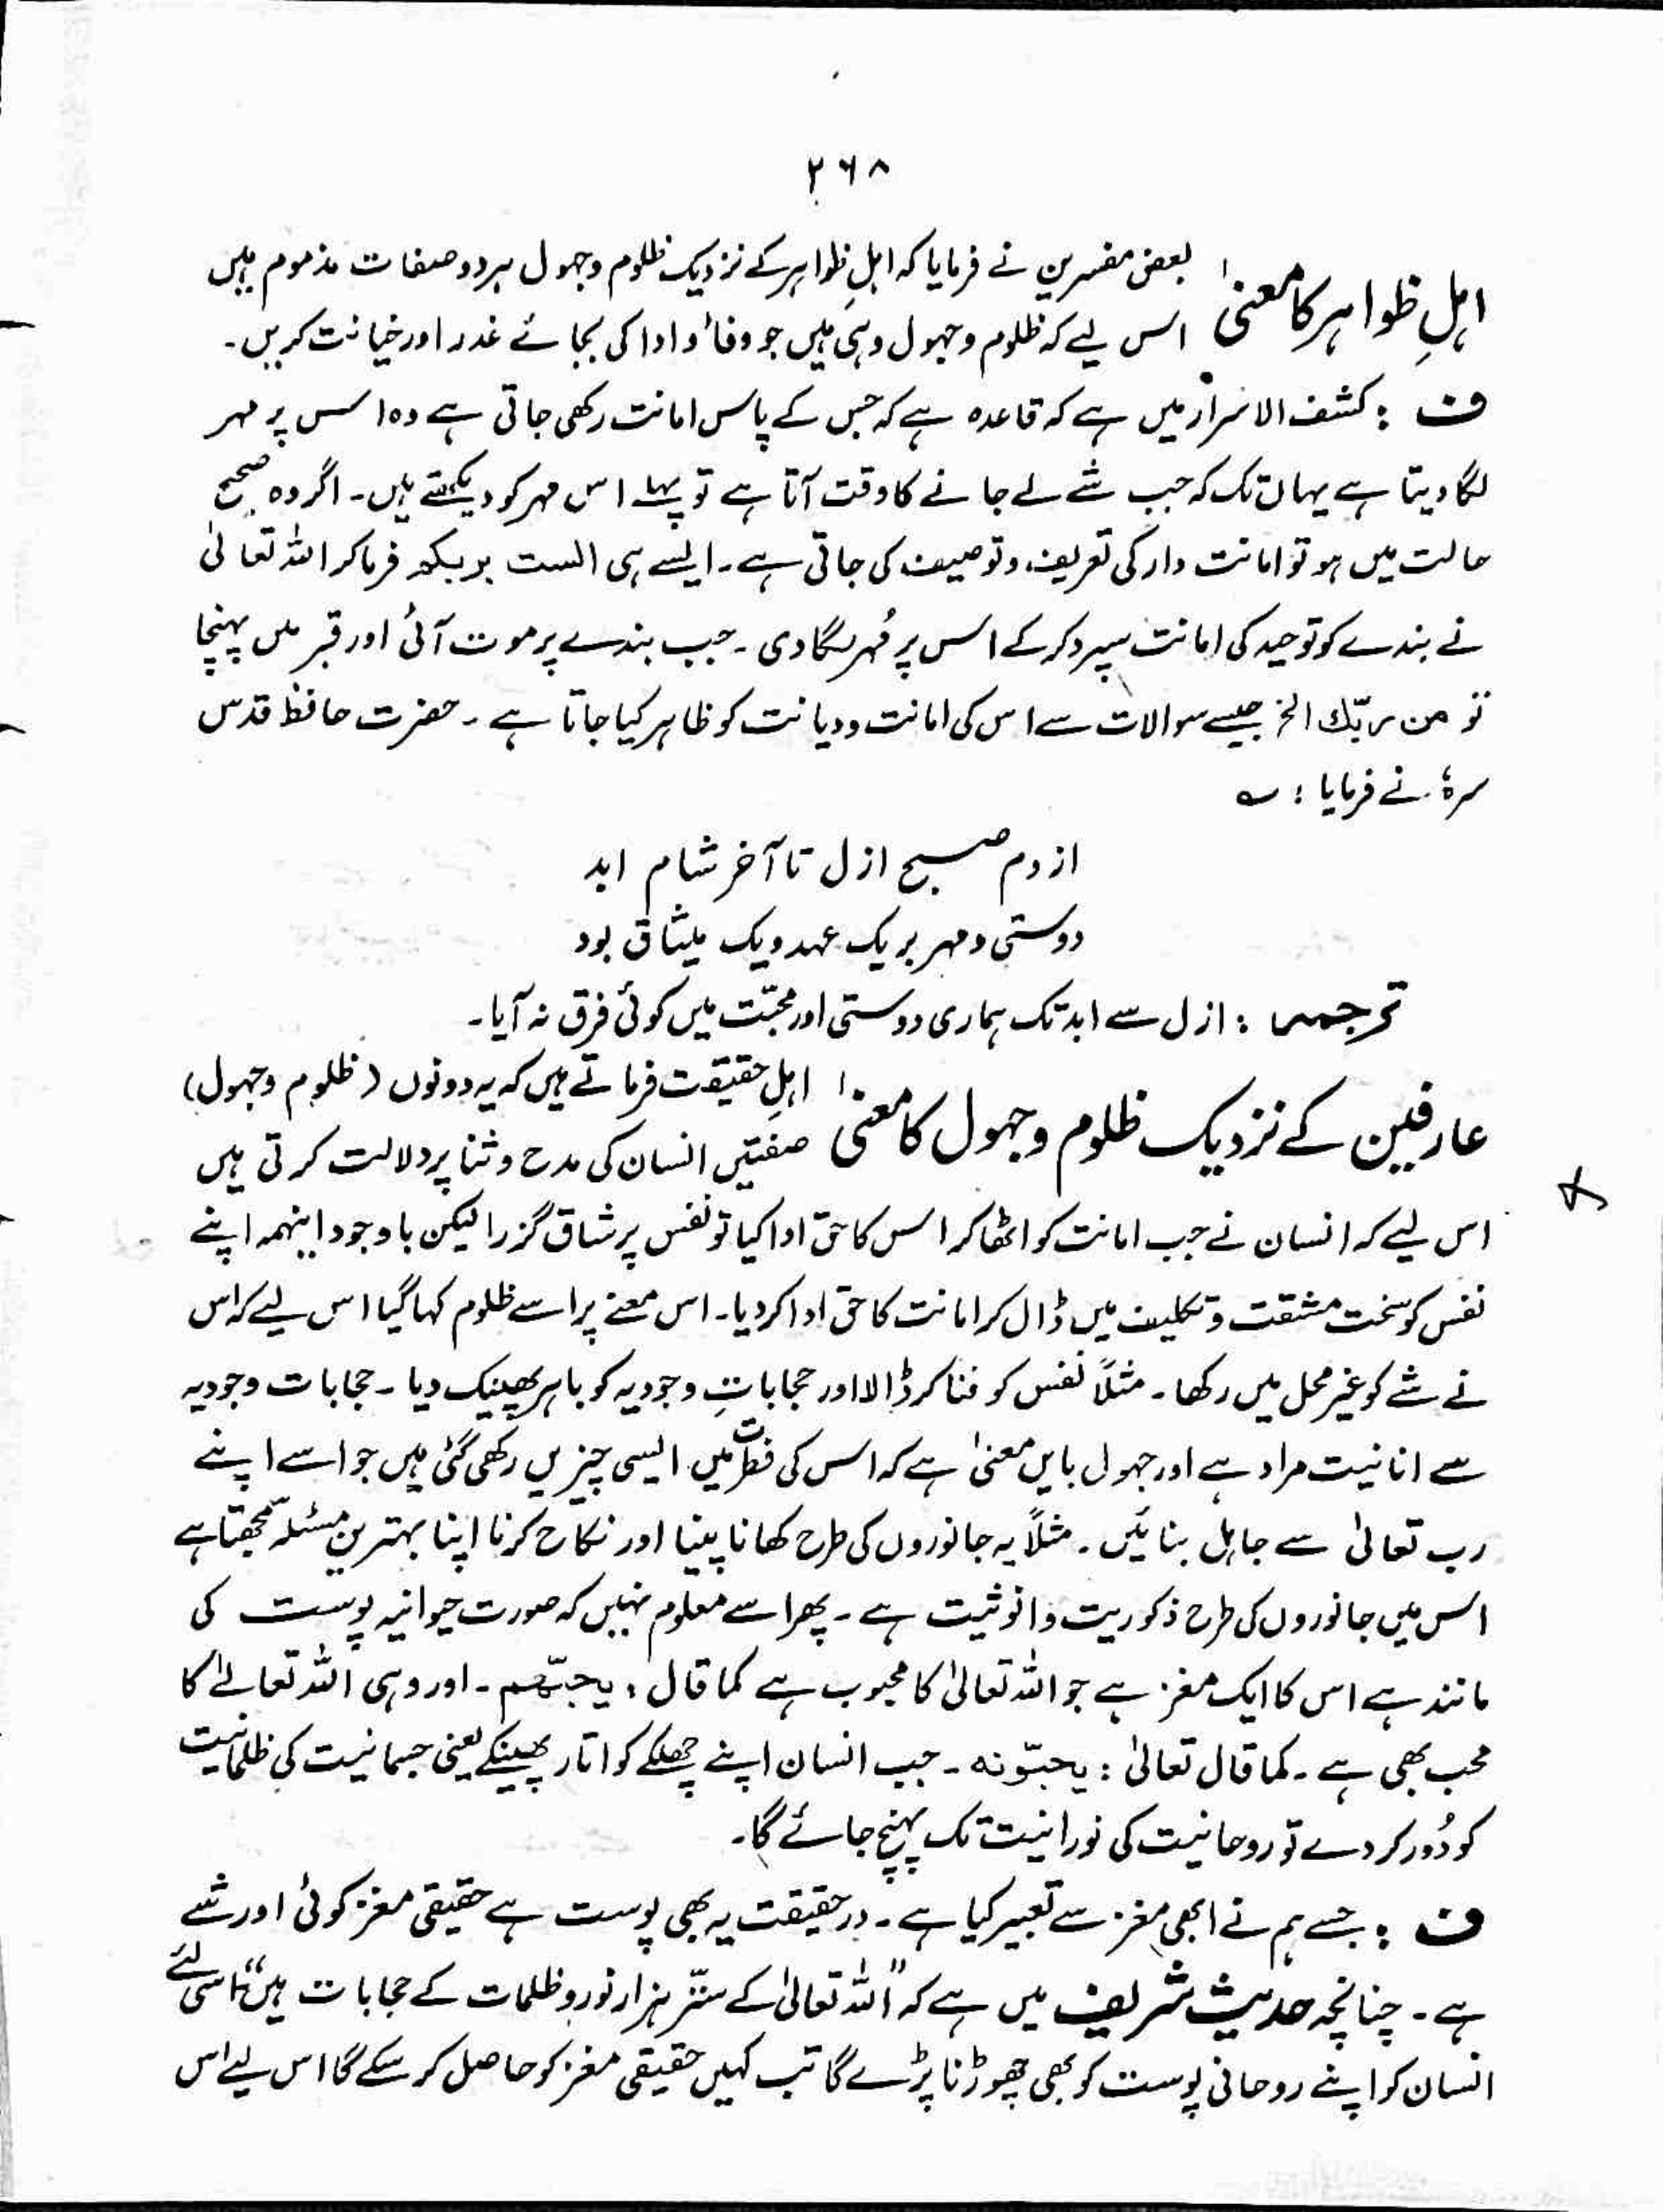 ۲۶۸
اہلِ ظواہر کا معنیٰ بعض مفسرین نے فرمایا کہ اہلِ ظواہر کے نزدیک ظلوم وجہول ہر دو صفات مذموم ہیں
اس لیے کہ ظلوم وجہول وہی ہیں جو وفأ و ادا کی بجائے غدر اور خیانت کریں۔
ف : کشف الاسرار میں ہے کہ قاعدہ ہے کہ جس کے پاس امانت رکھی جاتی ہے وہ اس پر مہر
لگا دیتا ہے یہاں تک کہ جب شے لے جانے کا وقت آتا ہے تو پہلے اس مہر کو دیکھتے ہیں۔ اگر وہ صحیح
حالت میں ہو تو امانت دار کی تعریف و توصیف کی جاتی ہے۔ ایسے ہی الست بربکم فرما کر اللہ تعالیٰ
نے بندے کو توحید کی امانت سپرد کرکے اس پر مُہر لگا دی۔ جب بندے پر موت آئی اور قبر میں پہنچا
تو من ربّك الخ جیسے سوالات سے اس کی امانت ودیانت کو ظاہر کیا جاتا ہے۔ حضرت حافظ قدس
سرہٗ نے فرمایا : ؎
از دم صبح ازل تا آخر شام ابد
دوستی و مہر بریک عہد ویک میثاق بود
ترجمہ : ازل سے ابد تک ہماری دوستی اور محبّت میں کوئی فرق نہ آیا۔
عارفین کے نزدیک ظلوم وجہول کا معنیٰ اہلِ حقیقت فرماتے ہیں کہ یہ دونوں (ظلوم وجہول)
صفتیں انسان کی مدح و ثنا پر دلالت کرتی ہیں
اس لیے کہ انسان نے جب امانت کو اٹھا کر اس کا حق ادا کیا تو نفس پر شاق گزرا لیکن باوجود اینہمہ اپنے
نفس کو سخت مشقت و تکلیف میں ڈال کر امانت کا حق ادا کر دیا۔ اس معنے پر اسے ظلوم کہا گیا اس لیے کہ اس
نے شے کو غیر محل میں رکھا۔ مثلاً نفس کو فنا کر ڈالا اور حجاباتِ وجودیہ کو باہر پھینک دیا۔ حجابات وجودیہ
سے انانیت مراد ہے اور جہول بایں معنیٰ ہے کہ اس کی فطرت میں ایسی چیزیں رکھی گئی ہیں جو اسے اپنے
رب تعالیٰ سے جاہل بنائیں۔ مثلاً یہ جانوروں کی طرح کھانا پینا اور نکاح کرنا اپنا بہترین مسئلہ سمجھتا ہے
اس میں جانوروں کی طرح ذکوریت وانوثیت ہے۔ پھر اسے معلوم نہیں کہ صورت حیوانیہ پوست کی
مانند ہے اس کا ایک مغز ہے جو اللہ تعالیٰ کا محبوب ہے کما قال : یحبّھم۔ اور وہی اللہ تعالےٰ کا
محب بھی ہے۔ کما قال تعالیٰ : یحبّونہ۔ جب انسان اپنے چھلکے کو اتار پھینکے یعنی جسمانیت کی ظلمانیت
کو دُور کر دے تو روحانیت کی نورانیت تک پہنچ جائے گا۔
ف : جسے ہم نے ابھی مغز سے تعبیر کیا ہے۔ درحقیقت یہ بھی پوست ہے حقیقی مغز کوئی اور شے
ہے۔ چنانچہ حدیث شریف میں ہے کہ "اللہ تعالیٰ کے ستّر ہزار نور و ظلمات کے حجابات ہیں" اسی لئے
انسان کو اپنے روحانی پوست کو بھی چھوڑنا پڑے گا تب کہیں حقیقی مغز کو حاصل کر سکے گا اس لیے اس